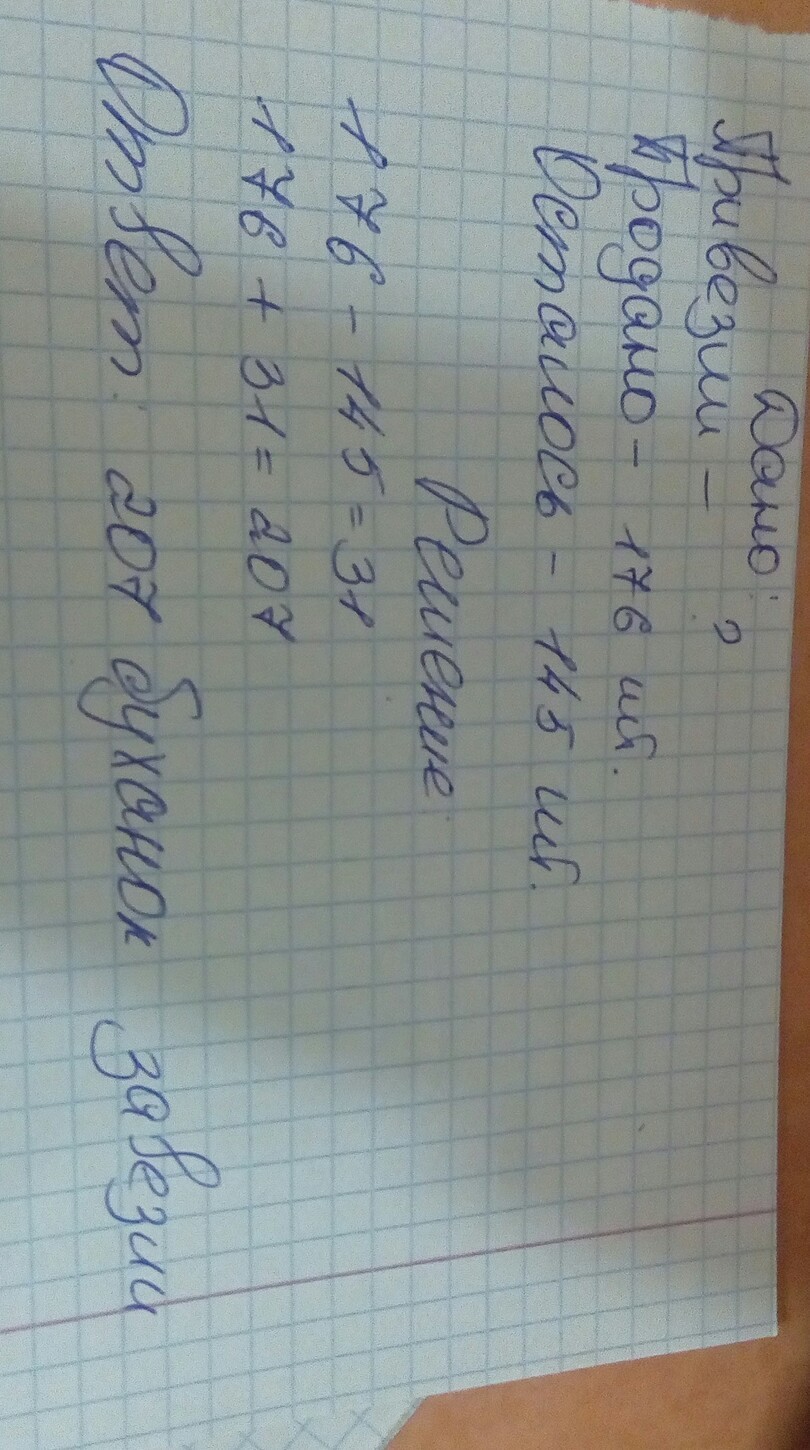 Дано:
Привезли - ?
Продано - 176 шт.
Осталось - 145 шт.
Решение
176 - 145 = 31
176 + 31 = 207
Ответ: 207 буханок завезли